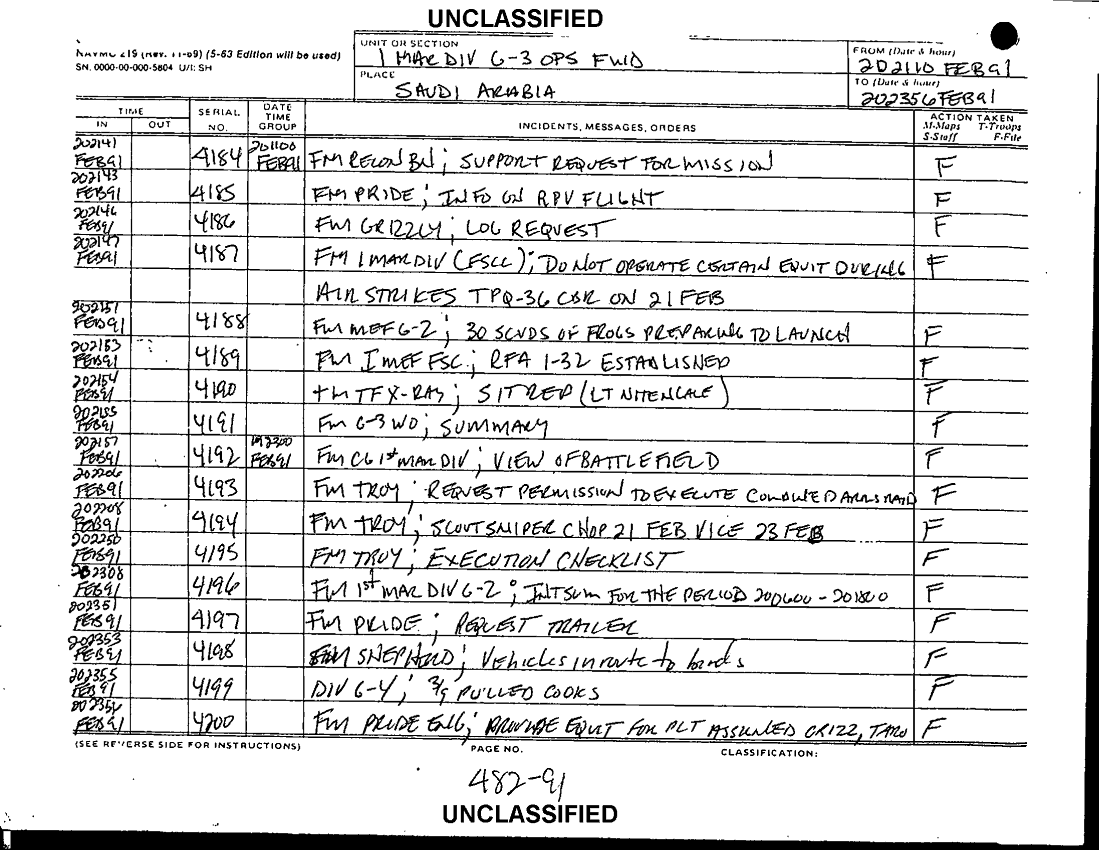 UNCLASSIFIED
NAVMC 219 (Rev. 11-69) (5-63 Edition will be used)
SN. 0000-00-000-5804 U/I: SH
UNIT OR SECTION
1 MAR DIV G-3 OPS FWD
PLACE
SAUDI ARABIA
FROM (Date & hour)
202110 FEB91
TO (Date & hour)
202356 FEB91
TIME
IN OUT
SERIAL NO.
DATE TIME GROUP
INCIDENTS, MESSAGES, ORDERS
ACTION TAKEN
M-Maps T-Troops
S-Staff F-File
202141 FEB91 4184 201100 FEB91 FM RECON BN; SUPPORT REQUEST FOR MISSION F
202143 FEB91 4185 FM PRIDE; INFO ON RPV FLIGHT F
202146 FEB91 4186 FM GRIZZLY; LOG REQUEST F
202147 FEB91 4187 FM 1 MAR DIV (FSCC); DO NOT OPERATE CERTAIN EQUIT DURING F
AIR STRIKES TPQ-36 CBR ON 21 FEB
202151 FEB91 4188 FM MEF G-2; 30 SCUDS OF FROGS PREPARING TO LAUNCH F
202153 FEB91 4189 FM I MEF FSC; RFA 1-32 ESTABLISHED F
202154 FEB91 4190 FM TF X-RAY; SITREP (LT NITENGALE) F
202155 FEB91 4191 FM G-3 WO; SUMMARY F
202157 FEB91 4192 192300 FEB91 FM CG 1st MAR DIV; VIEW OF BATTLEFIELD F
202206 FEB91 4193 FM TROY; REQUEST PERMISSION TO EXECUTE COMBINED ARMS RAID F
202208 FEB91 4194 FM TROY; SCOUT SNIPER CHOP 21 FEB VICE 23 FEB F
202250 FEB91 4195 FM TROY; EXECUTION CHECKLIST F
202308 FEB91 4196 FM 1st MAR DIV G-2; INTSUM FOR THE PERIOD 200600 - 201800 F
202351 FEB91 4197 FM PRIDE; REQUEST TRAILER F
202353 FEB91 4198 FM SHEPHERD; Vehicles inroute to F
202355 FEB91 4199 DIV G-4; 3/9 PULLED COOKS F
202356 FEB91 4200 FM PRIDE ENG; PROVIDE EQUIT FOR PLT ASSIGNED GRIZZ, TARO F
(SEE REVERSE SIDE FOR INSTRUCTIONS)
PAGE NO.
CLASSIFICATION:
482-91
UNCLASSIFIED